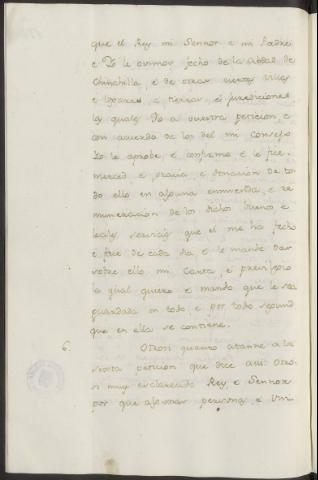 que el Rey mi Sennor e mi Padre
e Yo le ovimos fecho de la Abdad de
Chinchilla, e de otras ciertas Villas
e logares, e tierras, e juredicciones
la qual Yo a vuestra peticion, e
con acuerdo de los del mi Consejo
Yo le aprobe e confirmo e le fice
merced e gracia e donacion de to-
do ello en alguna enmienda, e re-
muneracion de los dichos buenos, e
leales servicios que el me ha fecho
e face de cada dia e le mande dar
sobre ello mi Carta e previllegio
la qual quiero e mando que le sea
guardada en todo, e por todo segund
que en ella se contiene.
6. Otrosi quanto atanne a la
sexta peticion que dice asi: Otro-
si muy esclarecido Rey, e Sennor
por que algunas personas, e Uni-